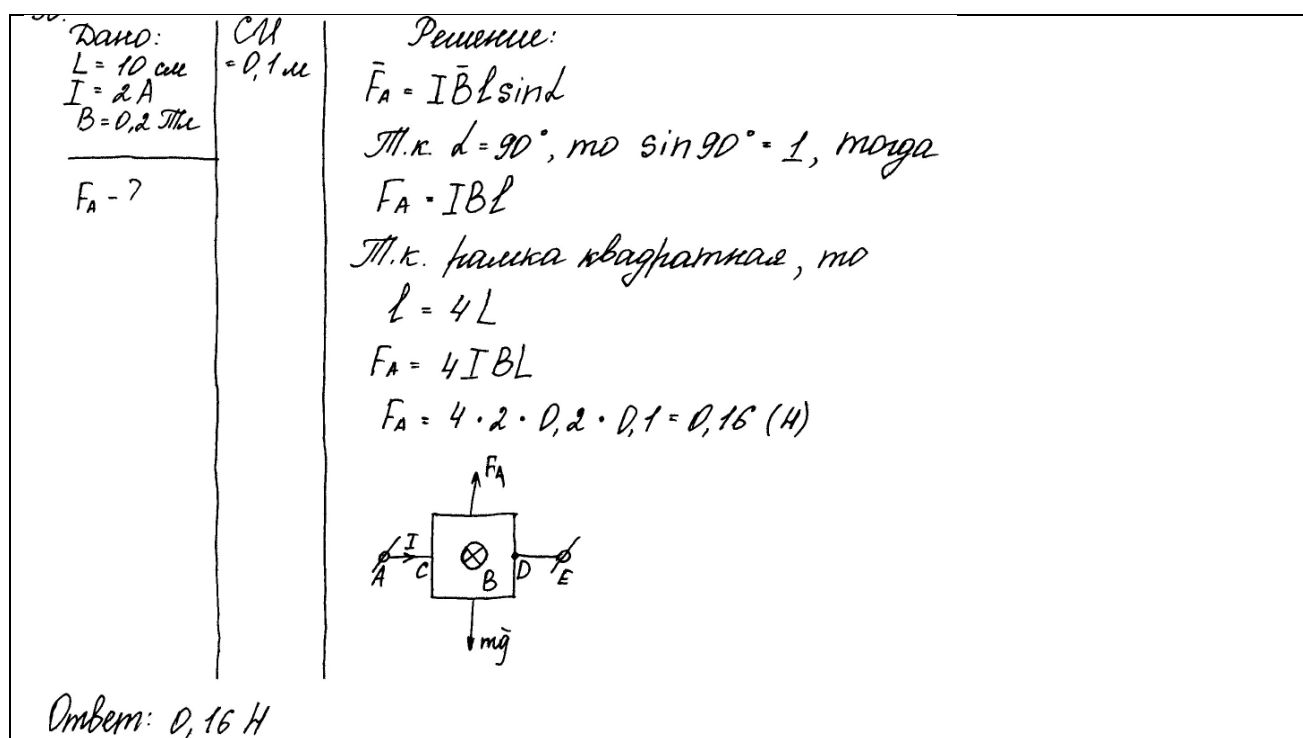 Дано:
L = 10 см
I = 2 А
B = 0,2 Тл
F_A - ?
СИ
= 0,1 м
Решение:
F̄_A = I B̄ l sinα
Т.к. α = 90°, то sin 90° = 1, тогда
F_A = IBl
Т.к. рамка квадратная, то
l = 4L
F_A = 4IBL
F_A = 4 · 2 · 0,2 · 0,1 = 0,16 (Н)
F_A
I
A C B D E
mḡ
Ответ: 0,16 Н